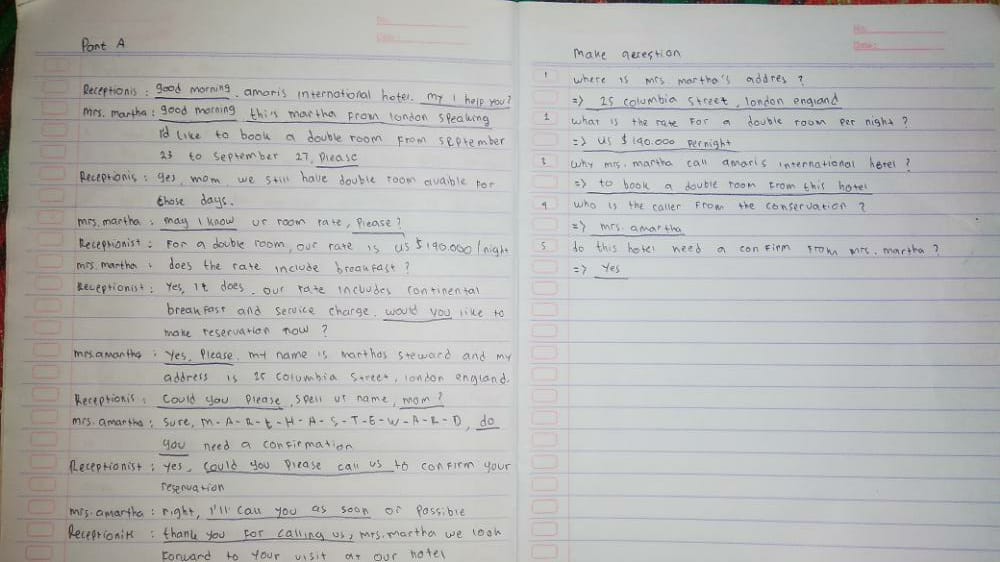 Part A
Receptionis : good morning, amaris international hotel. my I help you?
Mrs. martha : good morning this martha From london speaking
I'd like to book a double room From september
23 to september 27, please
Receptionis : yes, mom, we still have double room avaible For
those days.
mrs. martha : may I know ur room rate, please?
Receptionist : For a double room, our rate is us $ 190.000 / night
mrs. martha : does the rate include breakfast ?
Receptionist : yes, It does. our rate includes continental
breakfast and service charge. would you like to
make reservation now ?
mrs.amartha : yes, please. my name is marthas steward and my
address is 25 columbia street, london england.
Receptionis : could you please, spell ur name, mom ?
mrs. amartha : sure, m-A-R-t-H-A-S-T-E-W-A-R-D, do
you need a confirmation
Receptionist : yes, could you please call us to confirm your
reservation
mrs. amartha : right, I'll call you as soon as possible
Receptionis : thank you for calling us, mrs. martha we look
Forward to your visit at our hotel
No:
Date:
make question
1 where is mrs. martha's addres ?
=> 25 columbia street, london england
2 what is the rate For a double room per night ?
=> us $ 190.000 pernight
3 why mrs. martha call amaris international hotel ?
=> to book a double room From this hotel
4 who is the caller From the conservation ?
=> mrs. amartha
5 do this hotel need a confirm From mrs. martha ?
=> Yes